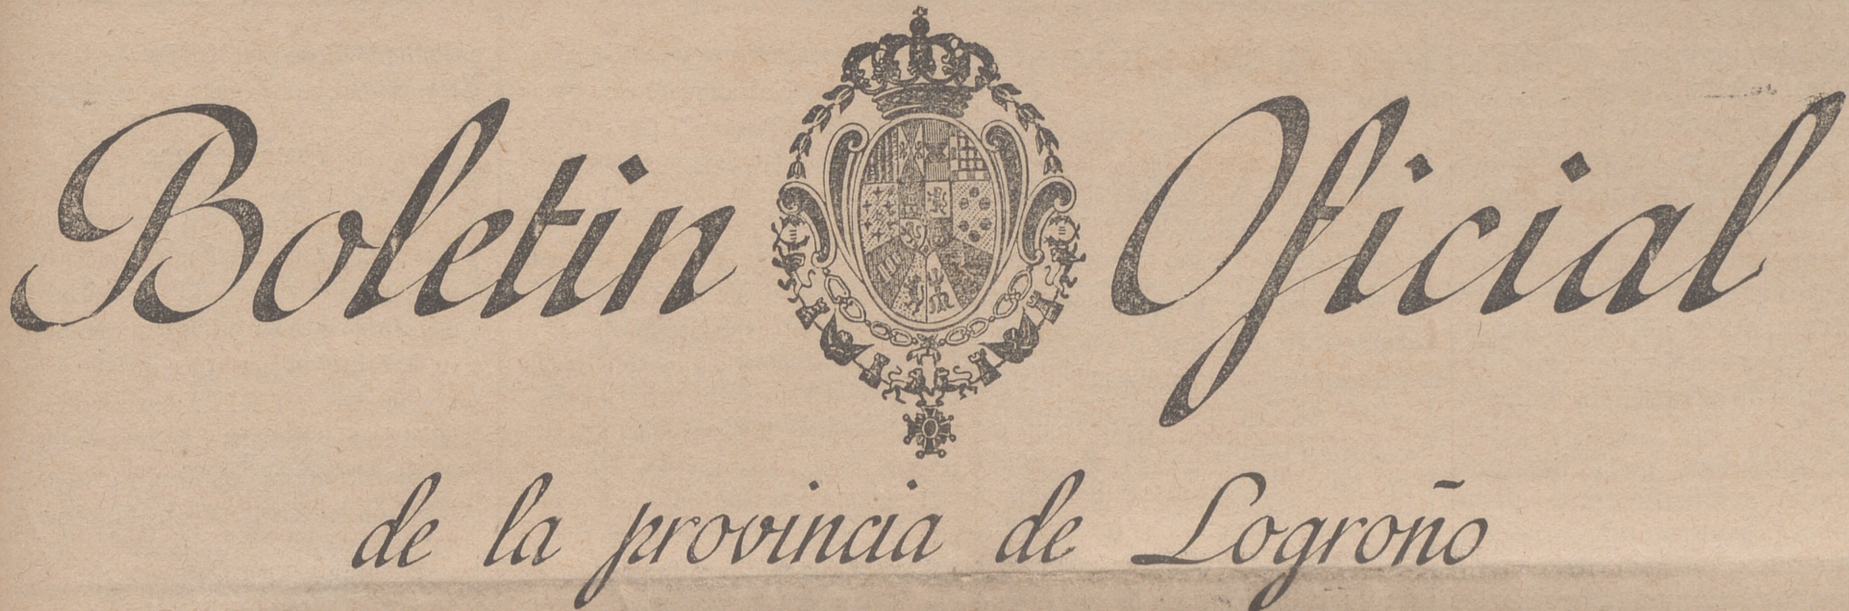 Boletin Oficial
de la provincia de Logroño